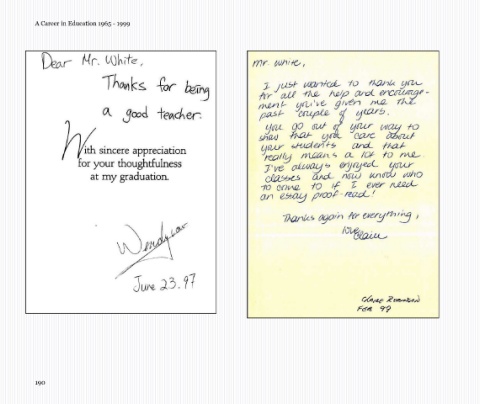 A Career in Education 1965 - 1999
Dear Mr. White,
Thanks for being
a good teacher.
With sincere appreciation
for your thoughtfulness
at my graduation.
June 23.97
Mr. White,
I just wanted to thank you
for all the help and encourage-
ment you've given me the
past couple of years.
You go out of your way to
show that you care about
your students and that
really means a lot to me.
I've always enjoyed your
classes and now know who
to come to if I ever need
an essay proof-read!
Thanks again for everything,
love
Claire
Claire Robinson
190